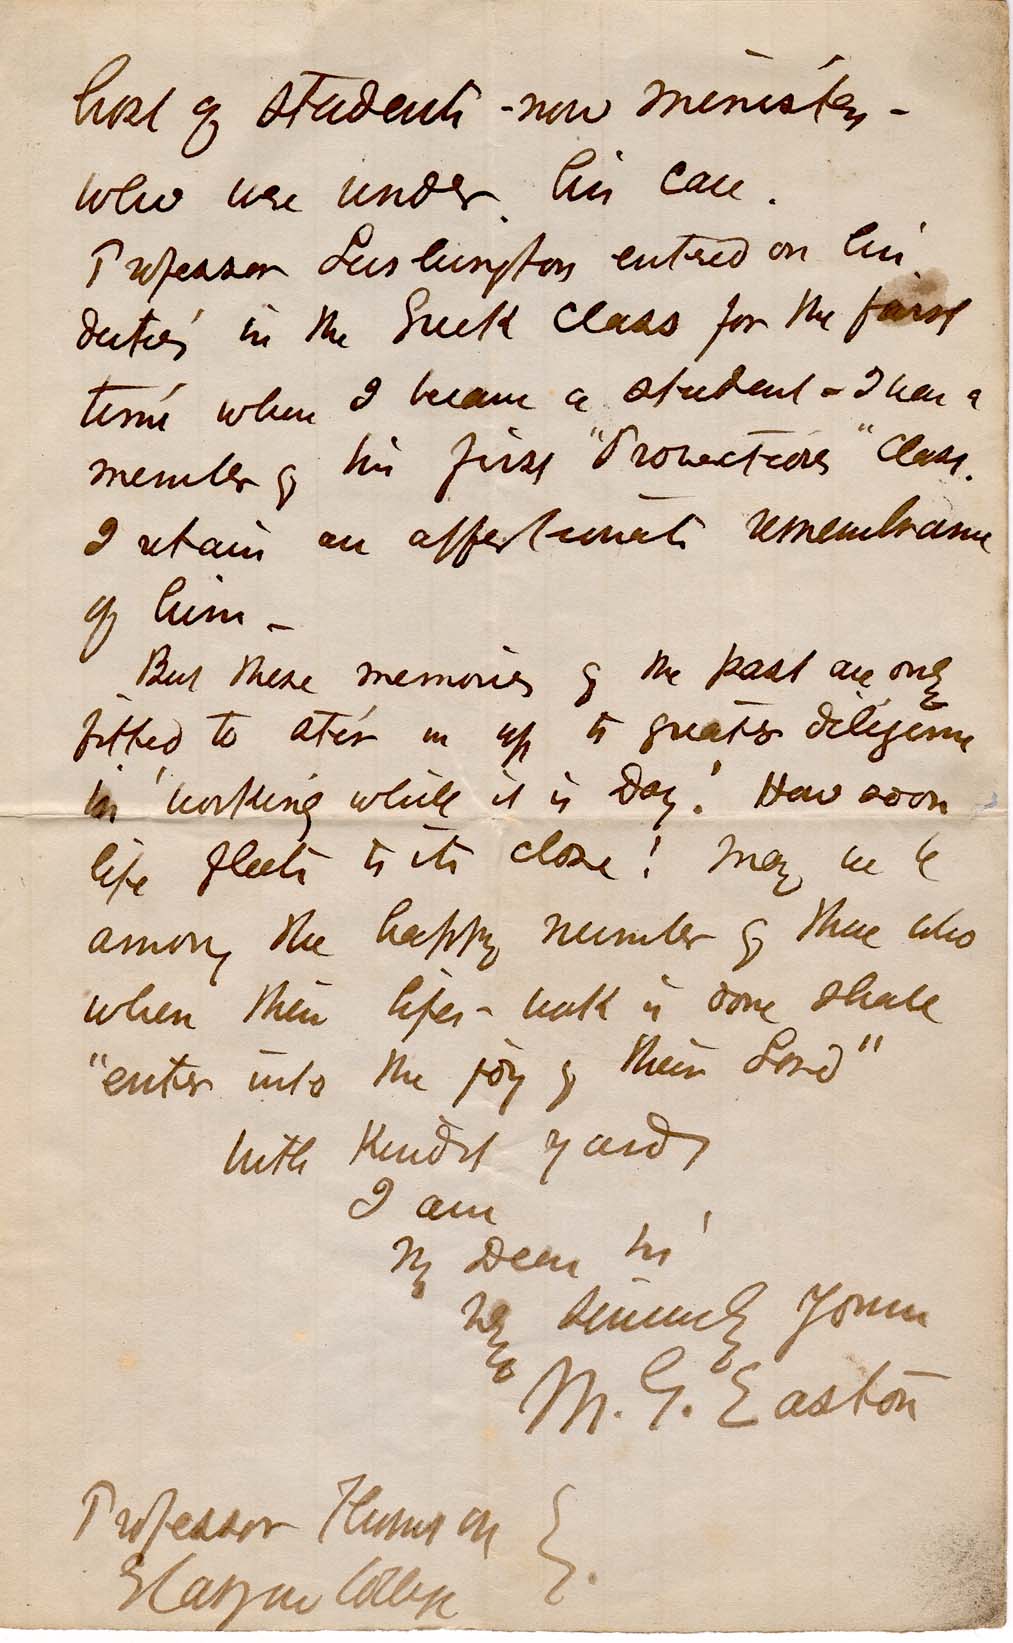 host of students - now ministers -
who were under his care.
Professor Lushington entered on his
duties in the Greek Class for the first
time when I became a student - I was a
member of his first "Provectiores" Class.
I retain an affectionate remembrance
of him -
But these memories of the past are only
fitted to stir us up to greater diligence
in working while it is Day! How soon
life fleets to its close! May we be
among the happy number of those who
when their lifes-work is done shall
"enter into the joy of their Lord"
With Kindest regards
I am
My Dear Sir
Very sincerely Yours
M. G. Easton
Professor Thomson
Glasgow College